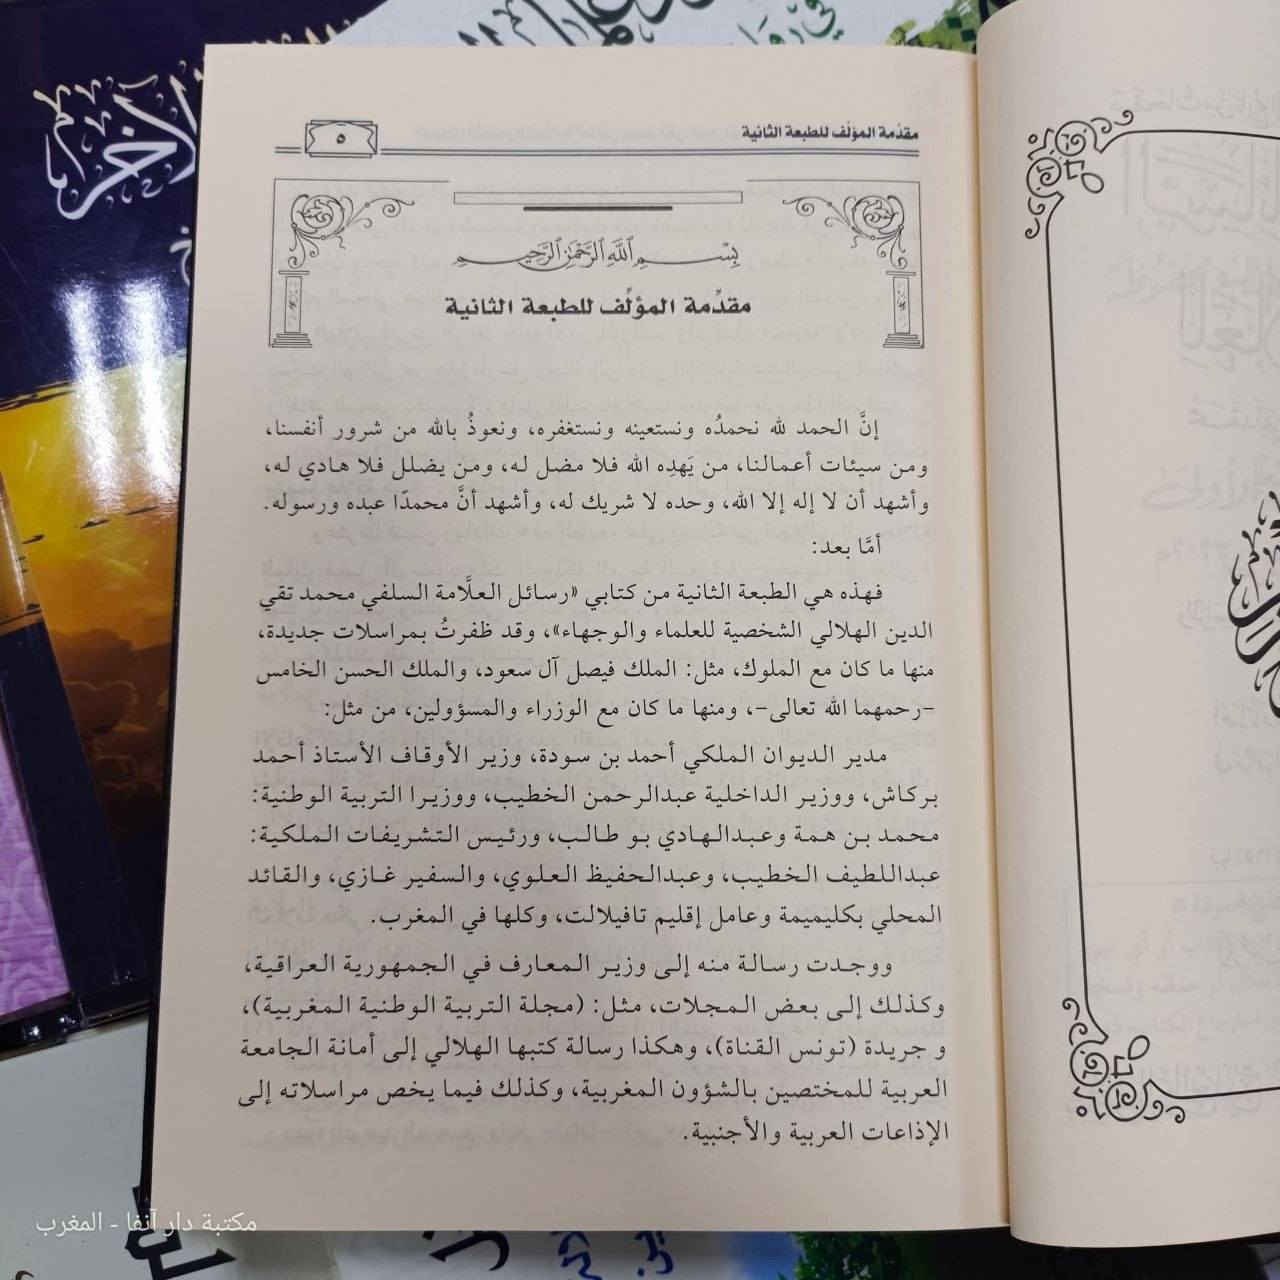 مقدّمة المؤلّف للطبعة الثانية
٥
بِسْمِ اللَّهِ الرَّحْمَنِ الرَّحِيمِ
مقدِّمة المؤلِّف للطبعة الثانية
إنَّ الحمد لله نحمدُه ونستعينه ونستغفره، ونعوذُ بالله من شرور أنفسنا،
ومن سيئات أعمالنا، من يَهدِه الله فلا مضل له، ومن يضلل فلا هادي له،
وأشهد أن لا إله إلا الله، وحده لا شريك له، وأشهد أنَّ محمدًا عبده ورسوله.
أمَّا بعد:
فهذه هي الطبعة الثانية من كتابي «رسائل العلَّامة السلفي محمد تقي
الدين الهلالي الشخصية للعلماء والوجهاء»، وقد ظفرتُ بمراسلات جديدة،
منها ما كان مع الملوك، مثل: الملك فيصل آل سعود، والملك الحسن الخامس
-رحمهما الله تعالى-، ومنها ما كان مع الوزراء والمسؤولين، من مثل:
مدير الديوان الملكي أحمد بن سودة، وزير الأوقاف الأستاذ أحمد
بركاش، ووزير الداخلية عبدالرحمن الخطيب، ووزيرا التربية الوطنية:
محمد بن همة وعبدالهادي بو طالب، ورئيس التشريفات الملكية:
عبداللطيف الخطيب، وعبدالحفيظ العلوي، والسفير غازي، والقائد
المحلي بكليميمة وعامل إقليم تافيلالت، وكلها في المغرب.
ووجدت رسالة منه إلى وزير المعارف في الجمهورية العراقية،
وكذلك إلى بعض المجلات، مثل: (مجلة التربية الوطنية المغربية)،
و جريدة (تونس القناة)، وهكذا رسالة كتبها الهلالي إلى أمانة الجامعة
العربية للمختصين بالشؤون المغربية، وكذلك فيما يخص مراسلاته إلى
الإذاعات العربية والأجنبية.
الآخر
مكتبة دار آنفا - المغرب